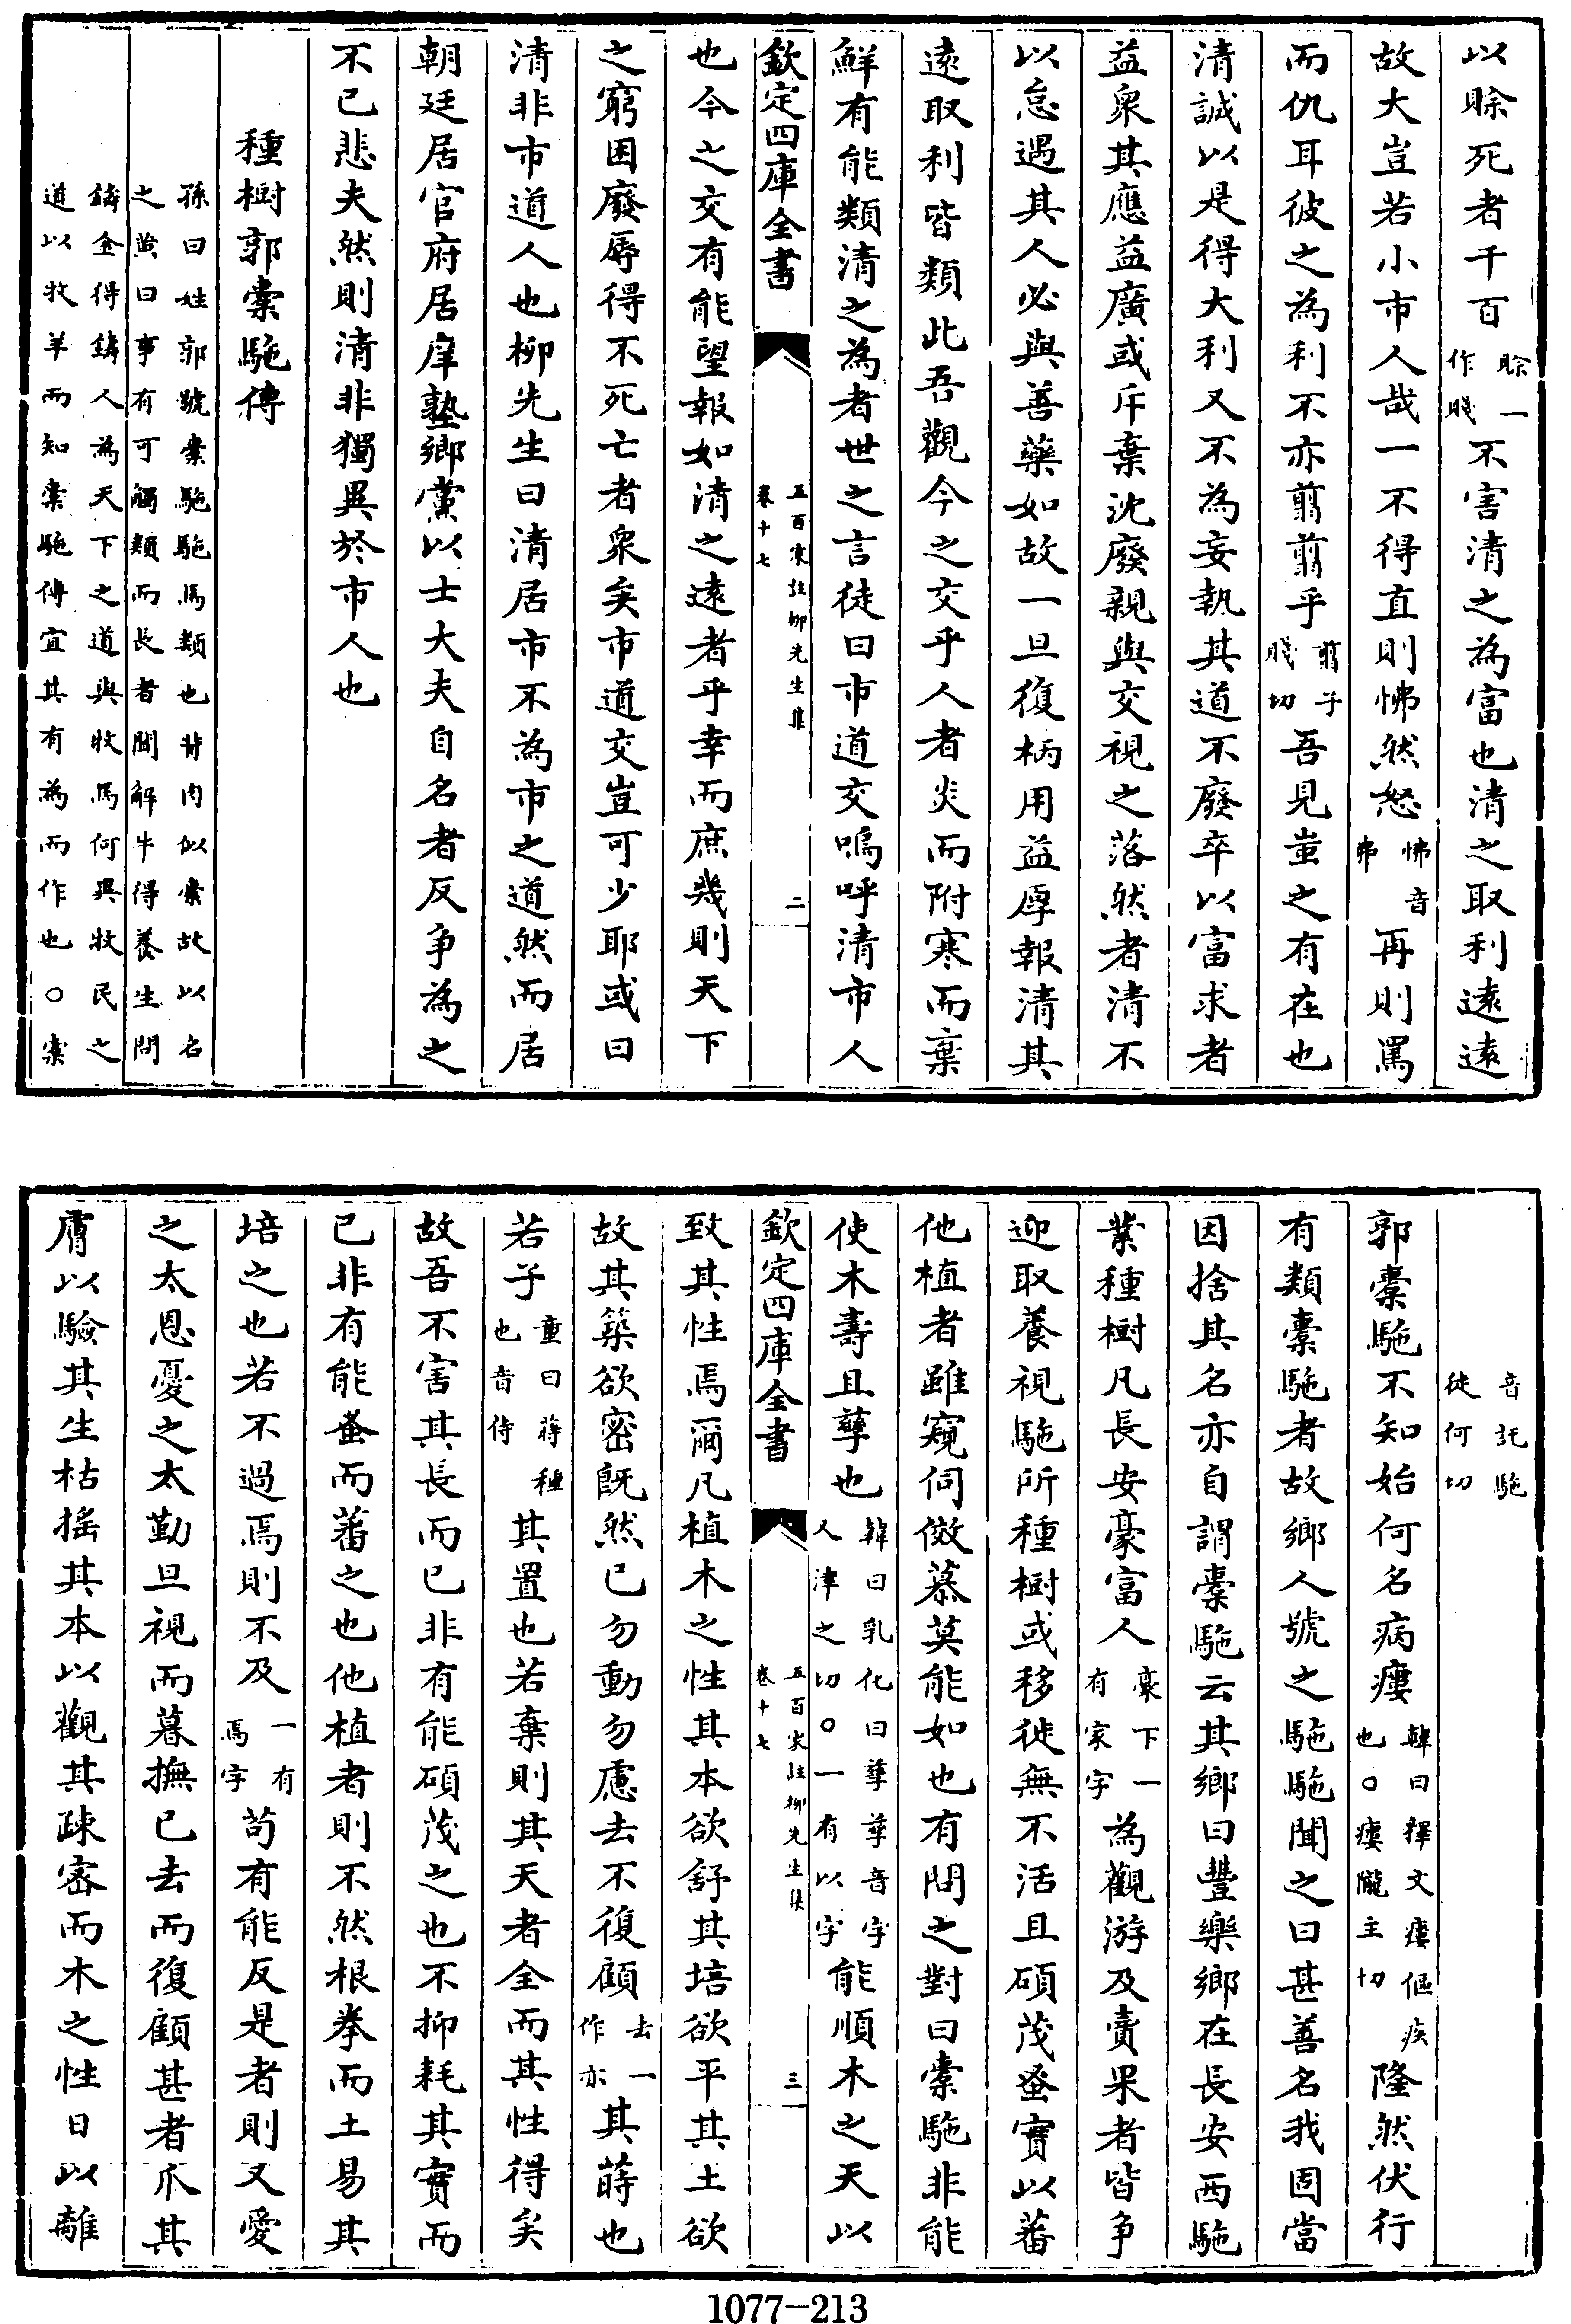 以賒死者千百賒一作賤不害清之為富也清之取利遠遠
故大豈若小市人哉一不得直則怫然怒怫音弗再則罵
而仇耳彼之為利不亦翦翦乎翦子賤切吾見蚩之有在也
清誠以是得大利又不為妄執其道不廢卒以富求者
益衆其應益廣或斥棄沈廢親與交視之落然者清不
以怠遇其人必與善藥如故一旦復柄用益厚報清其
遠取利皆類此吾觀今之交乎人者炎而附寒而棄
鮮有能類清之為者世之言徒曰市道交嗚呼清市人
欽定四庫全書 五百家註柳先生集卷十七 二
也今之交有能望報如清之遠者乎幸而庶幾則天下
之窮困廢辱得不死亡者衆矣市道交豈可少耶或曰
清非市道人也柳先生曰清居市不為市之道然而居
朝廷居官府居庠塾鄉黨以士大夫自名者反爭為之
不已悲夫然則清非獨異於市人也
種樹郭橐駞傳
孫曰姓郭號橐駞駞馬類也背肉似橐故以名
之黄曰事有可觸類而長者聞解牛得養生問
鑄金得鑄人為天下之道與牧馬何異牧民之
道以牧羊而知橐駞傳宜其有為而作也○橐
音託駞
徒何切
郭橐駞不知始何名病瘻韓曰釋文瘻傴疾也○瘻隴主切隆然伏行
有類橐駞者故鄉人號之駞駞聞之曰甚善名我固當
因捨其名亦自謂橐駞云其鄉曰豐樂鄉在長安西駞
業種樹凡長安豪富人豪下一有家字為觀游及賣果者皆爭
迎取養視駞所種樹或移徙無不活且碩茂蚤實以蕃
他植者雖窺伺傚慕莫能如也有問之對曰橐駞非能
使木壽且孳也韓曰乳化曰孳孳音字又津之切○一有以字能順木之天以
欽定四庫全書 五百家註柳先生集卷十七 三
致其性焉爾凡植木之性其本欲舒其培欲平其土欲
故其築欲密旣然已勿動勿慮去不復顧去一作亦其蒔也
若子童曰蒔種也音侍其置也若棄則其天者全而其性得矣
故吾不害其長而已非有能碩茂之也不抑耗其實而
已非有能蚤而蕃之也他植者則不然根拳而土易其
培之也若不過焉則不及一有焉字苟有能反是者則又愛
之太恩憂之太勤旦視而暮撫已去而復顧甚者爪其
膚以驗其生枯搖其本以觀其疎密而木之性日以離
1077-213